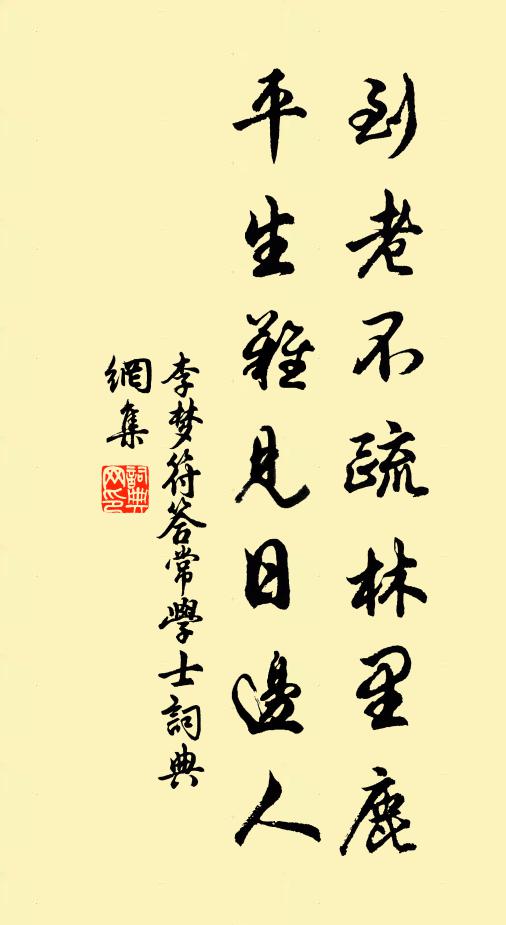 到老不疏林里鹿
平生難見日邊人
李梦符答常學士詞典
網集
詞典网印